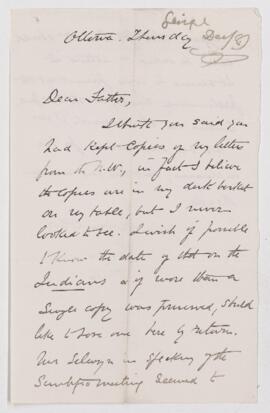 Ottawa. Thursday Dec/81
Dear Father,
I think you said you
had kept copies of my letters
from the N.W., in fact I believe
the copies are in my desk basket
on my table, but I never
looked to see. I wish if possible
to know the date of that on the
Indians & if more than a
single copy was preserved, should
like to have one here by return.
Mr Selwyn in speaking of the
meeting seemed to